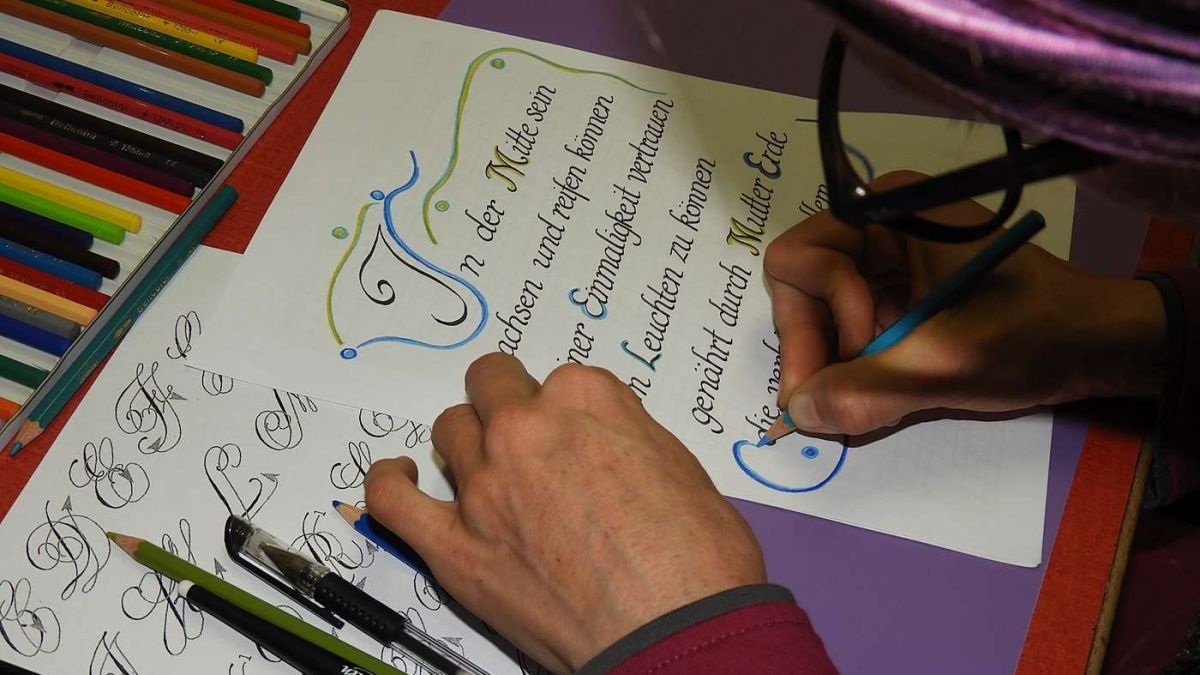 In der Mitte sein
achsen und reifen können
iner Einmaligkeit vertrauen
Leuchten zu können
genährt durch Mutter Erde
die
Bellcolor